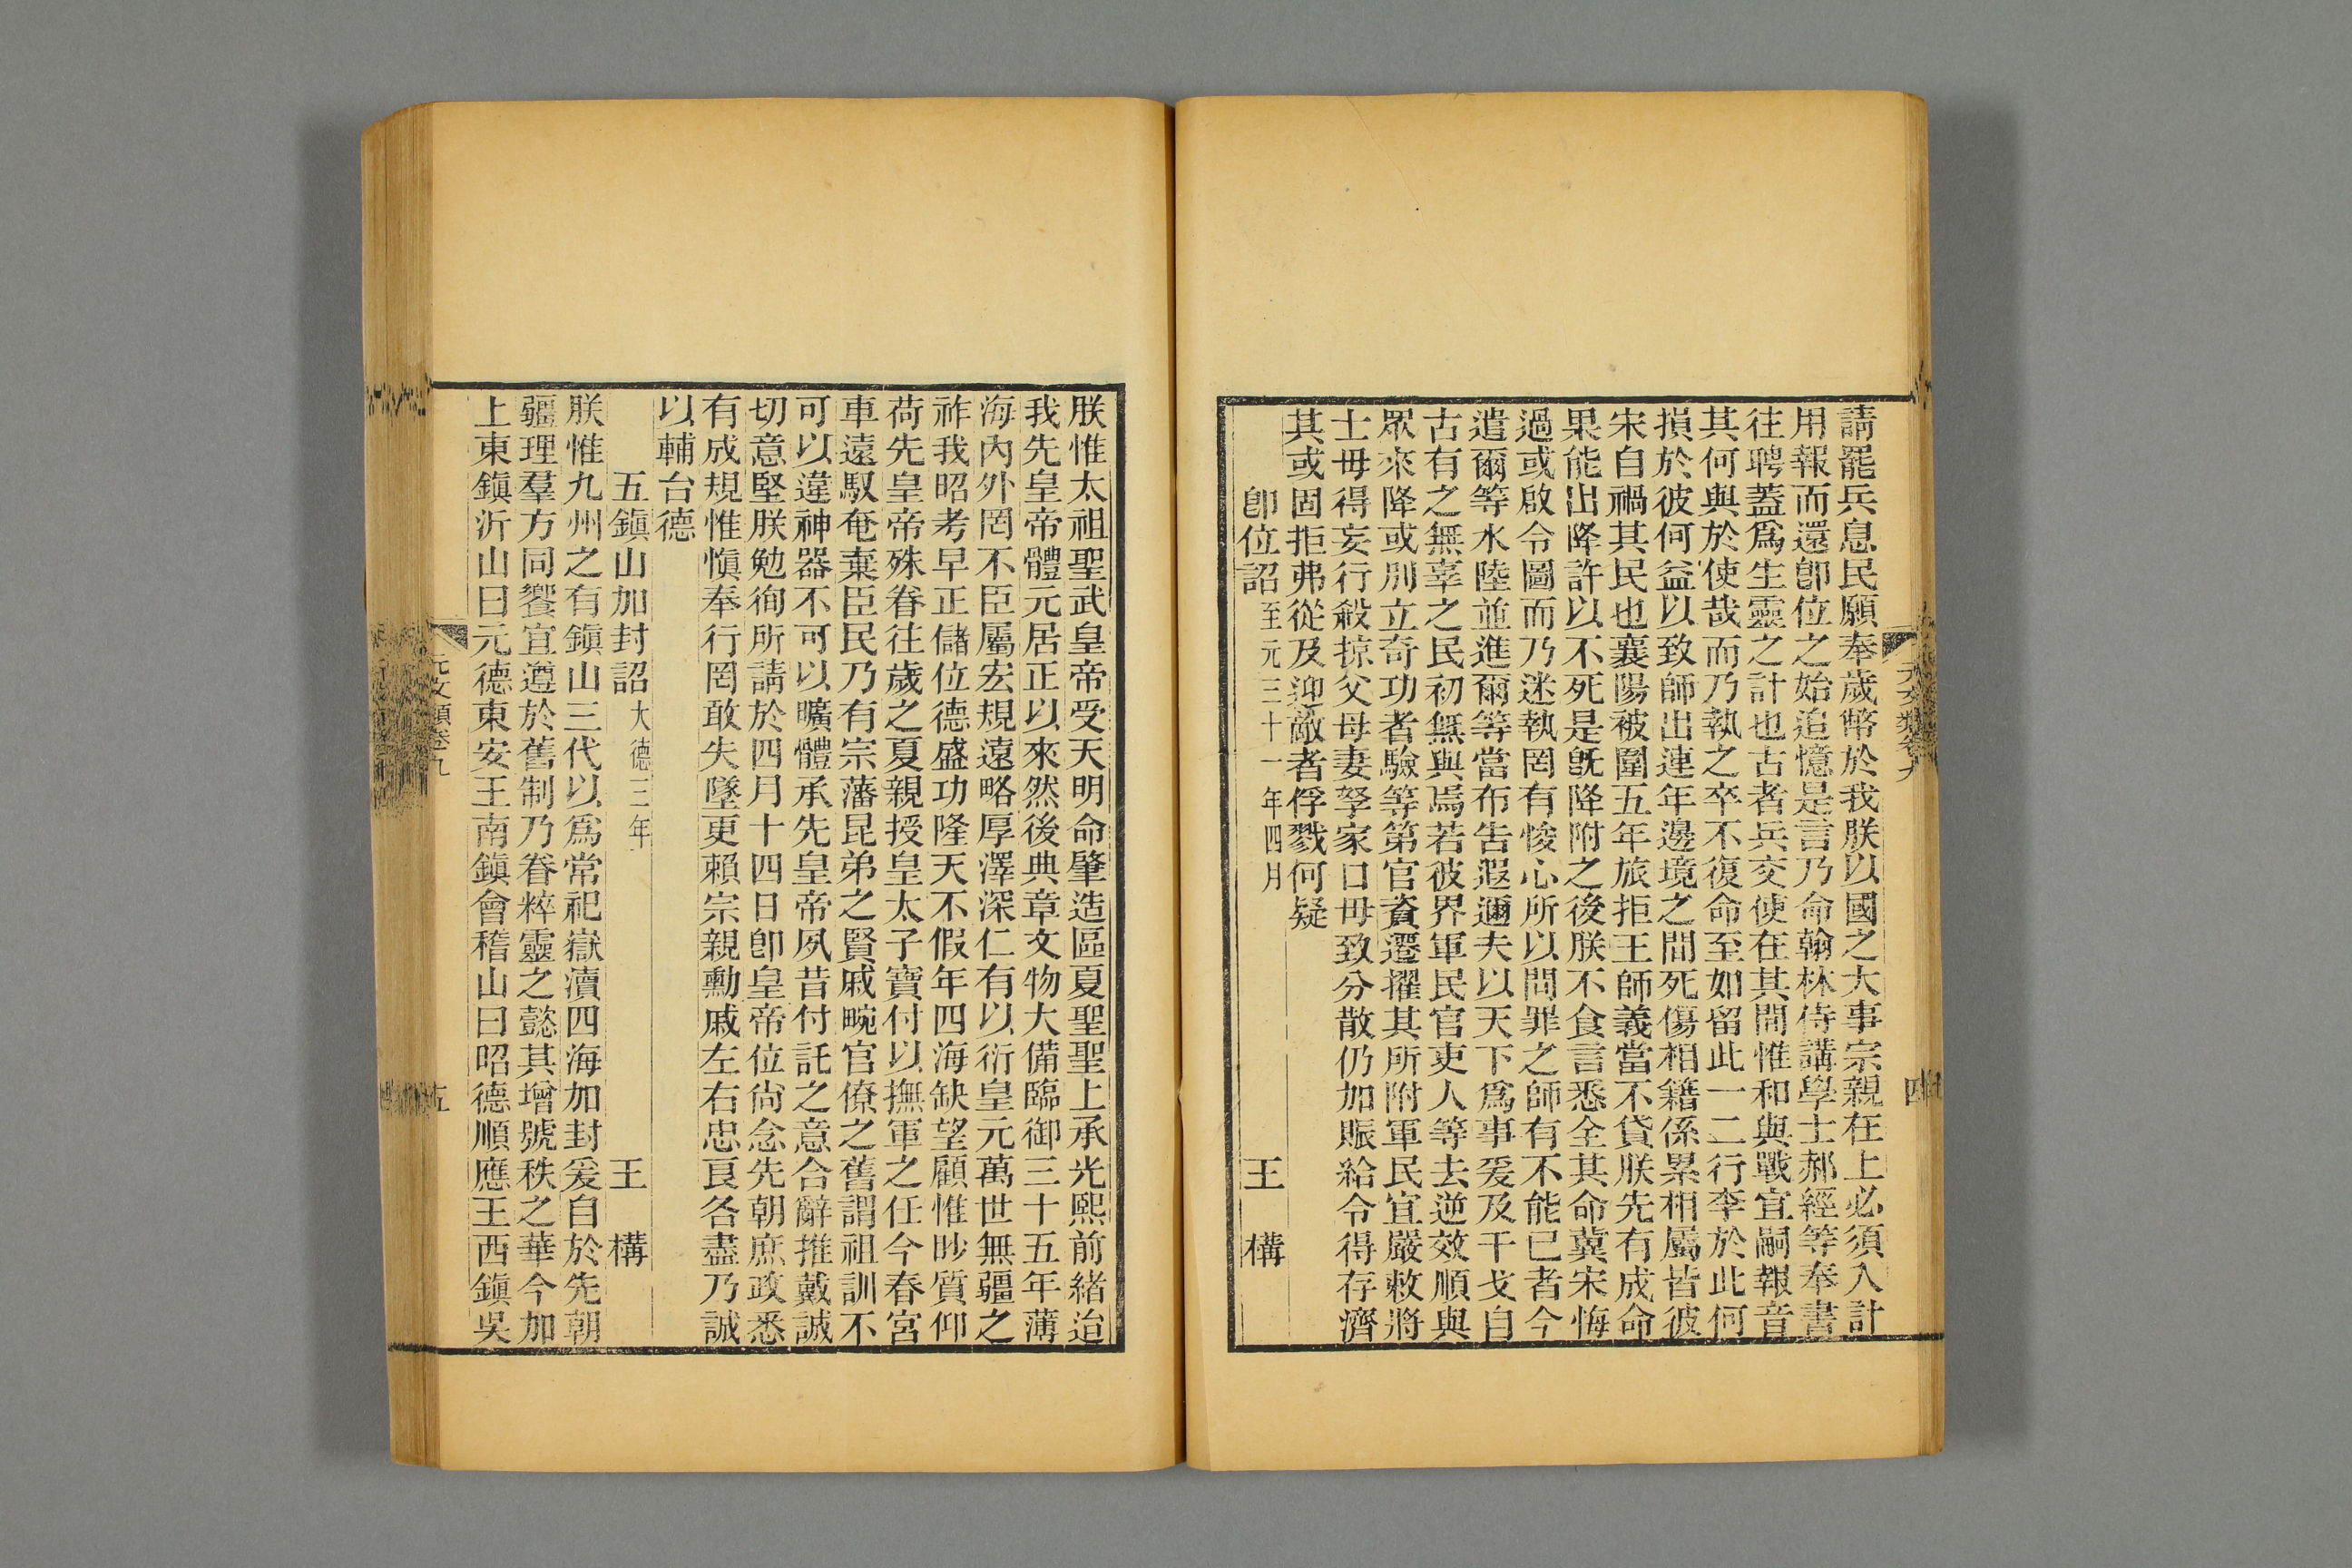 請罷兵息民願奉歲幣於我朕以國之大事宗親在上必須入計
用報而還卽位之始追憶是言乃命翰林侍講學士郝經等奉書
往聘蓋爲生靈之計也古者兵交使在其間惟和與戰宜嗣報音
其何與於使哉而乃執之卒不復命至如留此一二行李於此何
損於彼何益以致師出連年邊境之間死傷相籍係累相屬皆彼
宋自禍其民也襄陽被圍五年旅拒王師義當不貸朕先有成命
果能出降許以不死是旣降附之後朕不食言悉全其命冀宋悔
過或啟令圖而乃迷執罔有悛心所以問罪之師有不能已者今
遣爾等水陸並進爾等當布吿遐邇夫以天下爲事爰及干戈自
古有之無辜之民初無與焉若彼界軍民官吏人等去逆效順與
眾來降或別立奇功者驗等第官資遷擢其所附軍民宜嚴敕將
士毋得妄行殺掠父母妻孥家口毋致分散仍加賑給令得存濟
其或固拒弗從及迎敵者俘戮何疑
卽位詔至元三十一年四月 王構
朕惟太祖聖武皇帝受天明命肇造區夏聖聖上承光熙前緒迨
我先皇帝體元居正以來然後典章文物大備臨御三十五年薄
海內外罔不臣屬宏規遠略厚澤深仁有以衍皇元萬世無疆之
祚我昭考早正儲位德盛功隆天不假年四海缺望顧惟眇質仰
荷先皇帝殊眷往歲之夏親授皇太子寶付以撫軍之任今春宮
車遠馭奄棄臣民乃有宗藩昆弟之賢戚畹官僚之舊謂祖訓不
可以違神器不可以曠體承先皇帝夙昔付託之意合辭推戴誠
切意堅朕勉徇所請於四月十四日卽皇帝位尙念先朝庶政悉
有成規惟愼奉行罔敢失墜更賴宗親勳戚左右忠良各盡乃誠
以輔台德
五鎮山加封詔大德三年 王構
朕惟九州之有鎮山三代以爲常祀嶽瀆四海加封爰自於先朝
疆理羣方同饗宜遵於舊制乃眷粹靈之懿其增號秩之華今加
上東鎮沂山曰元德東安王南鎮會稽山曰昭德順應王西鎮吳
元文類卷九